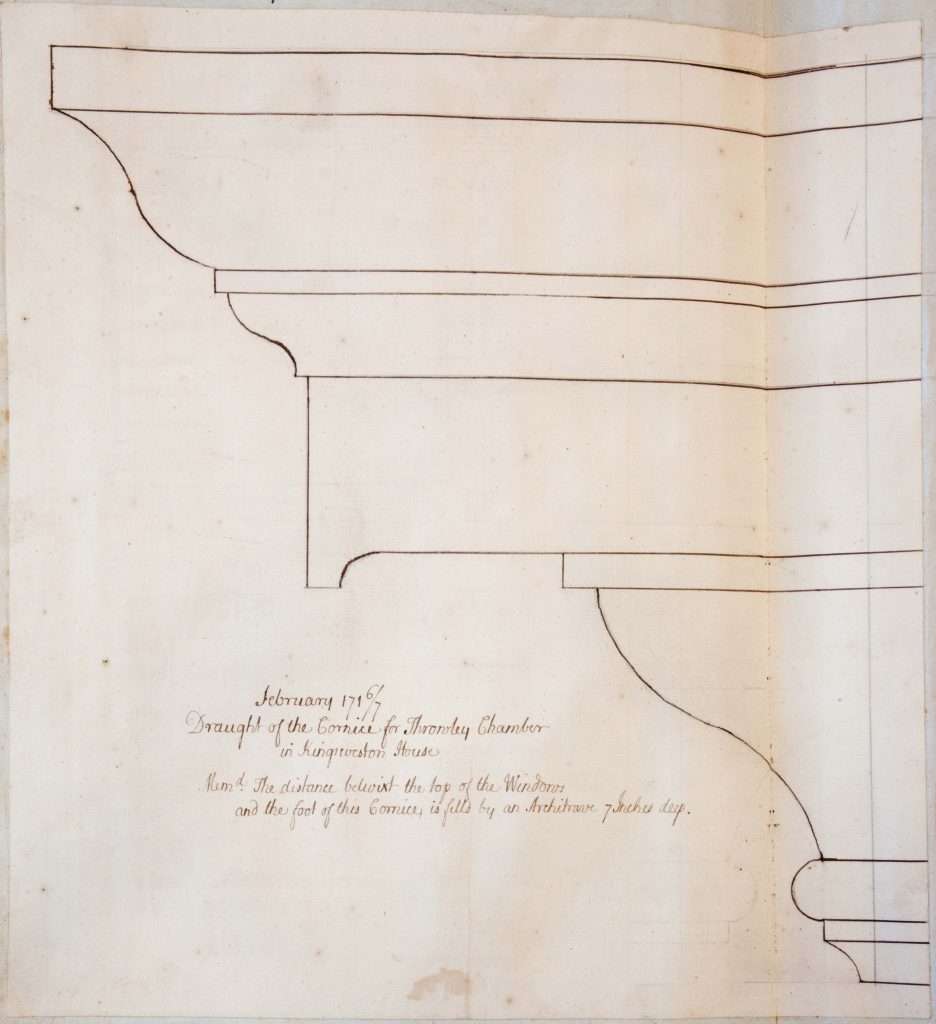 February 1716/7
Draught of the Cornice for Throwley Chamber
in Kingsweston House
Memd. The distance betwixt the top of the Windows
and the foot of this Cornice, is filld by an Architrave 7 Inches deep.